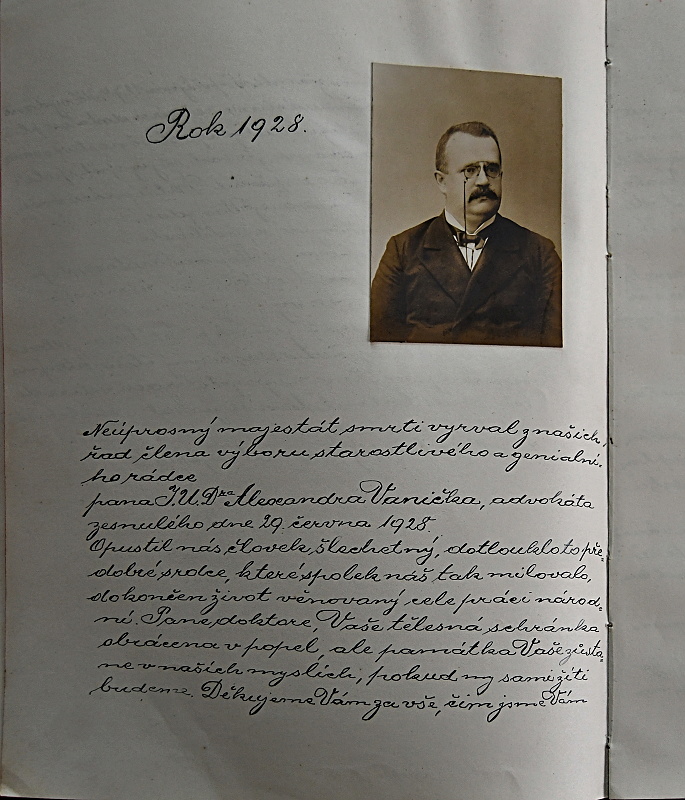 Rok 1928.
Neúprosný majestát smrti vyrval z našich
řad člena výboru starostlivého a genialní-
ho rádce
pana J.U.Dra Alexandra Vanička, advokáta
zesnulého dne 29. června 1928.
Opustil nás člověk šlechetný, dotlouklo to pře-
dobré srdce, které spolek náš tak milovalo,
dokončen život věnovaný cele práci národ-
ní. Pane doktore, Vaše tělesná schránka
obrácena v popel, ale památka Vaše zůsta-
ne v našich myslích, pokud my sami žíti
budeme. Děkujeme Vám za vše, čím jsme Vám